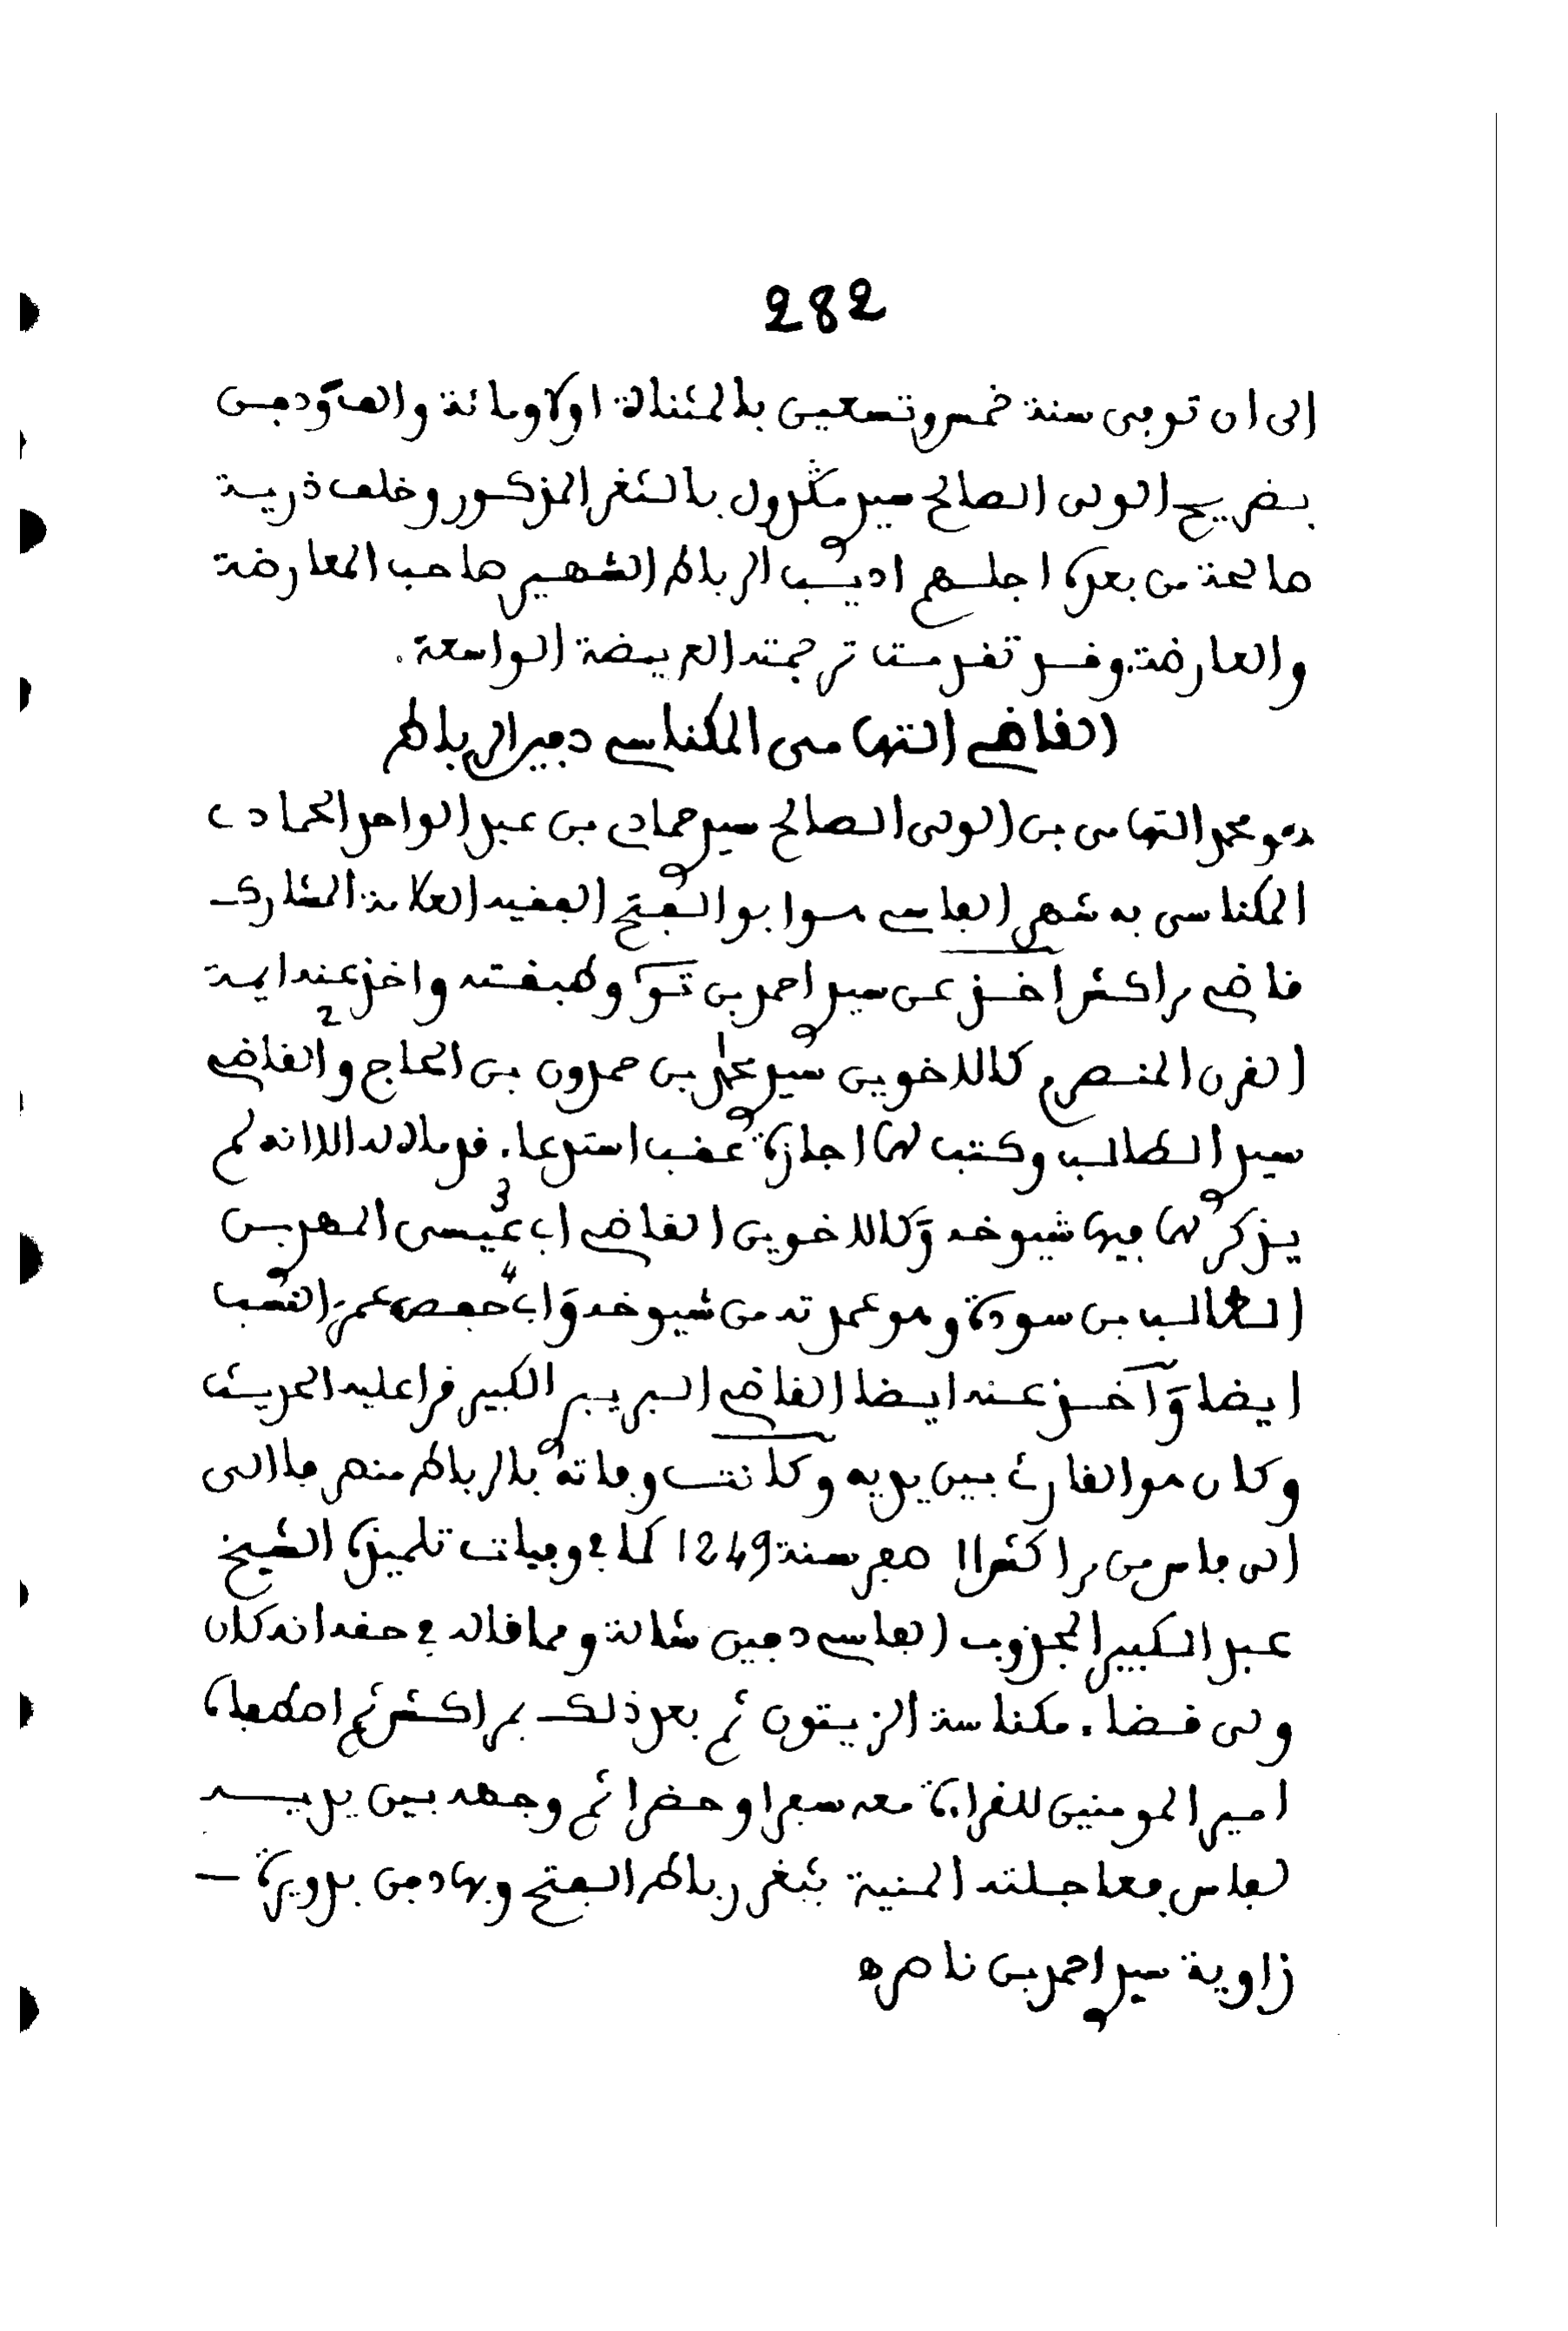 282
الى ان توفى سنة خمس وتسعين بالمثناة اولا ومائة والف ودفن
بضريح الولى الصالح سيدى مگدول بالثغر المذكور وخلف ذرية
صالحة من بعده اجلهم اديب الرباط الشهير صاحب المعارضة
والعارضة. وقد تقدمت ترجمته العريضة الواسعة.
القاضى التهامى المكناسى دفين الرباط
هو محمد التهامى بن الولى الصالح سيدى حمادى بن عبد الواحد الحمادى
المكناسى به شهر الفاسى هو ابو الفتح الفقيه العلامة المشارك
قاضى مراكش اخذ عن سيدى احمد بن تو وطبقته واخذ عنه ايمة
القرن المنصرم كالاخوين سيدى محمد بن حمدون بن الحاج 2 والقاضى
سيدى الطالب وكتب لهما اجازة عقب استدعاء. قدماه له الا انه لم
يذكر لهما فيها شيوخه وكالاخوين القاضى ابى 3 عيسى المهدى بن
الطالب بن سودة وهو عمدته من شيوخه وابى 4 حفص عمر النسب
ايضا واخذ عنه ايضا القاضى البريبرى الكبير قرا عليه الحديث
وكان هو القارئ بين يديه وكانت وفاته بالرباط منصرفا الى
الى فاس من مراكش 11 صفر سنة 1249 كما فى وفيات تلميذه الشيخ
عبد الكبير المجذوب الفاسى دفين شالة ومما قاله فى حقه انه كان
ولى قضاء. مكناسة الزيتون ثم بعد ذلك بمراكش ثم اصطفاه
امير المومنين للقراءة معه سفرا وحضرا ثم وجهه بين يديه
لفاس فعاجلته المنية بثغر رباط الفتح وبها دفن بدويرة —
زاوية سيدى احمد بن ناصر ه